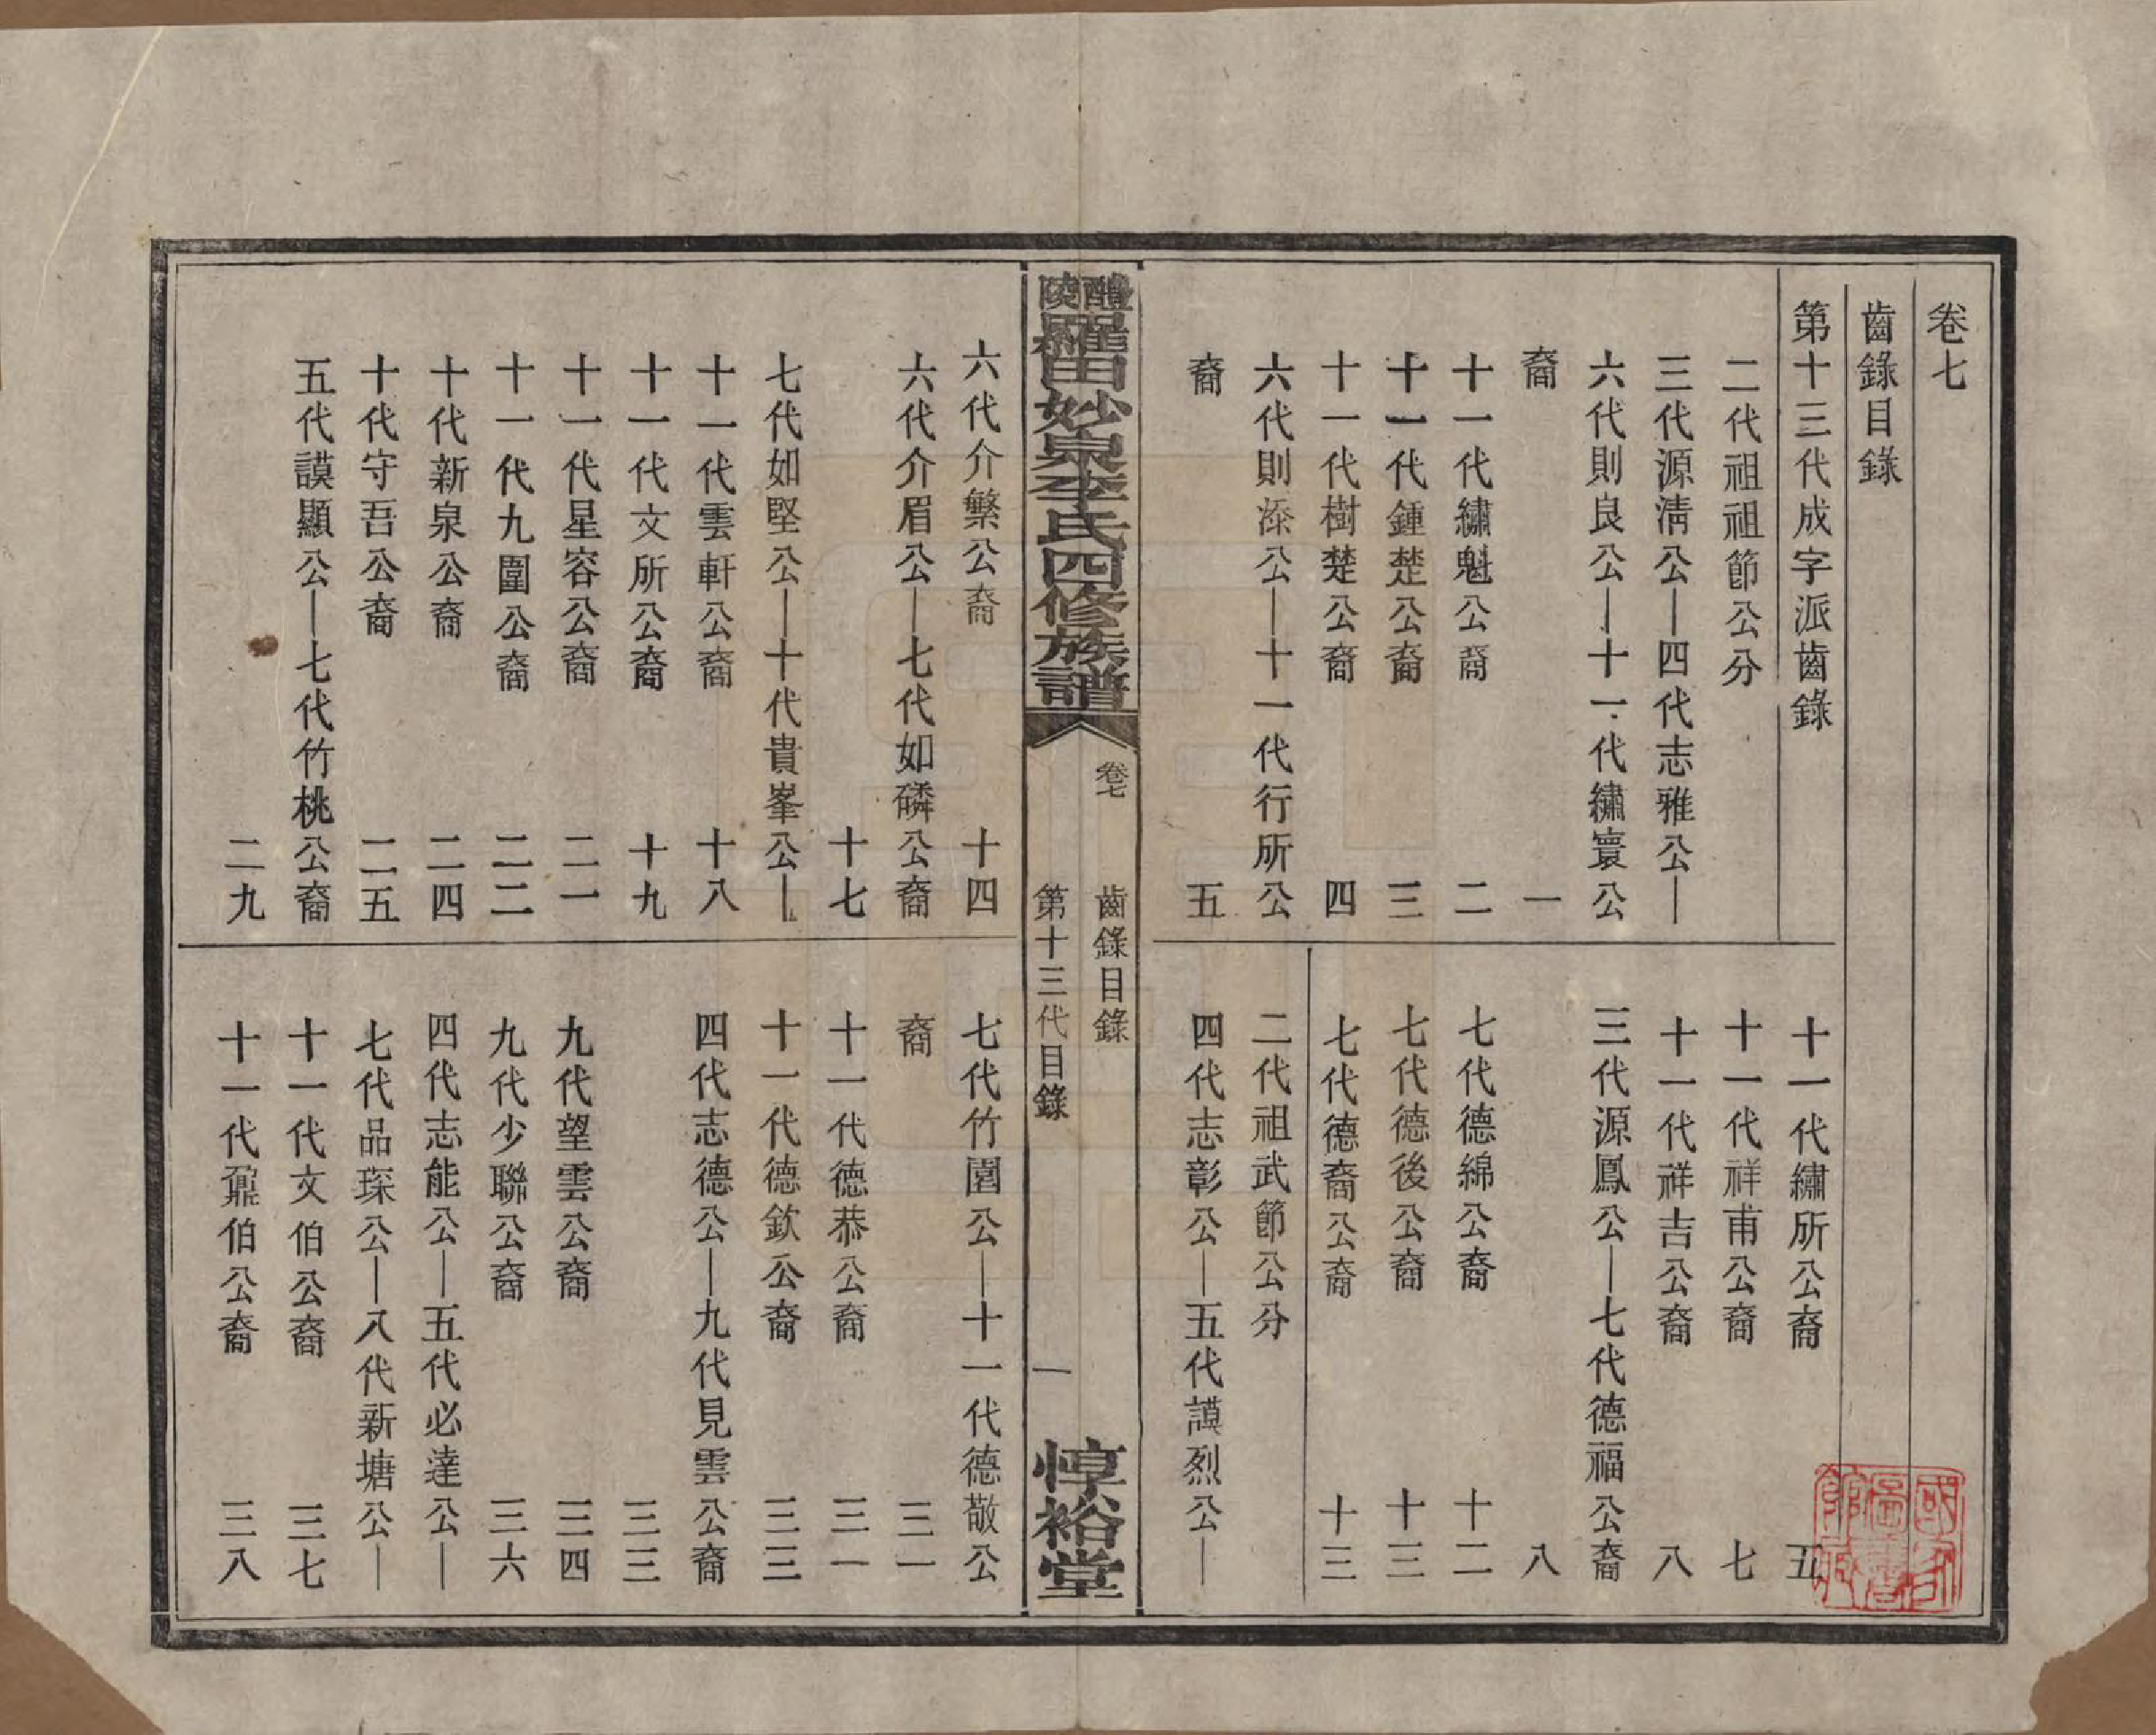 卷七
齒錄目錄
第十三代成字派齒錄
二代祖祖節公分
三代源清公—四代志雅公—
六代則良公—十一代繡寰公
裔 一
十一代繡魁公裔 二
十一代鍾楚公裔 三
十一代樹楚公裔 四
六代則漆公—十一代行所公
裔 五
十一代繡所公裔 五
十一代祥甫公裔 七
十一代祥吉公裔 八
三代源鳳公—七代德福公裔
八
七代德綿公裔 十二
七代德後公裔 十三
七代德裔公裔 十三
二代祖武節公分
四代志彰公—五代謨烈公—
醴陵羅田妙泉李氏四修族譜
卷七 齒錄目錄
第十三代目錄 一
惇裕堂
六代介繁公裔 十四
六代介眉公—七代如磷公裔
十七
七代如堅公—十代貴峯公—
十一代雲軒公裔 十八
十一代文所公裔 十九
十一代星容公裔 二一
十一代九圍公裔 二二
十代新泉公裔 二四
十代守吾公裔 二五
五代謨顯公—七代竹桃公裔
二九
七代竹園公—十一代德敬公
裔 三一
十一代德恭公裔 三一
十一代德欽公裔 三三
四代志德公—九代見雲公裔
三三
九代望雲公裔 三四
九代少聯公裔 三六
四代志能公—五代必達公—
七代品琛公—八代新塘公—
十一代文伯公裔 三七
十一代鼐伯公裔 三八